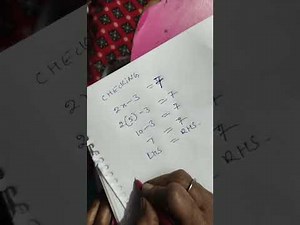 CHECKING
2x-3 = 7
2(5)-3 = 7
10-3 = 7
7 = 7
LHS = RHS.